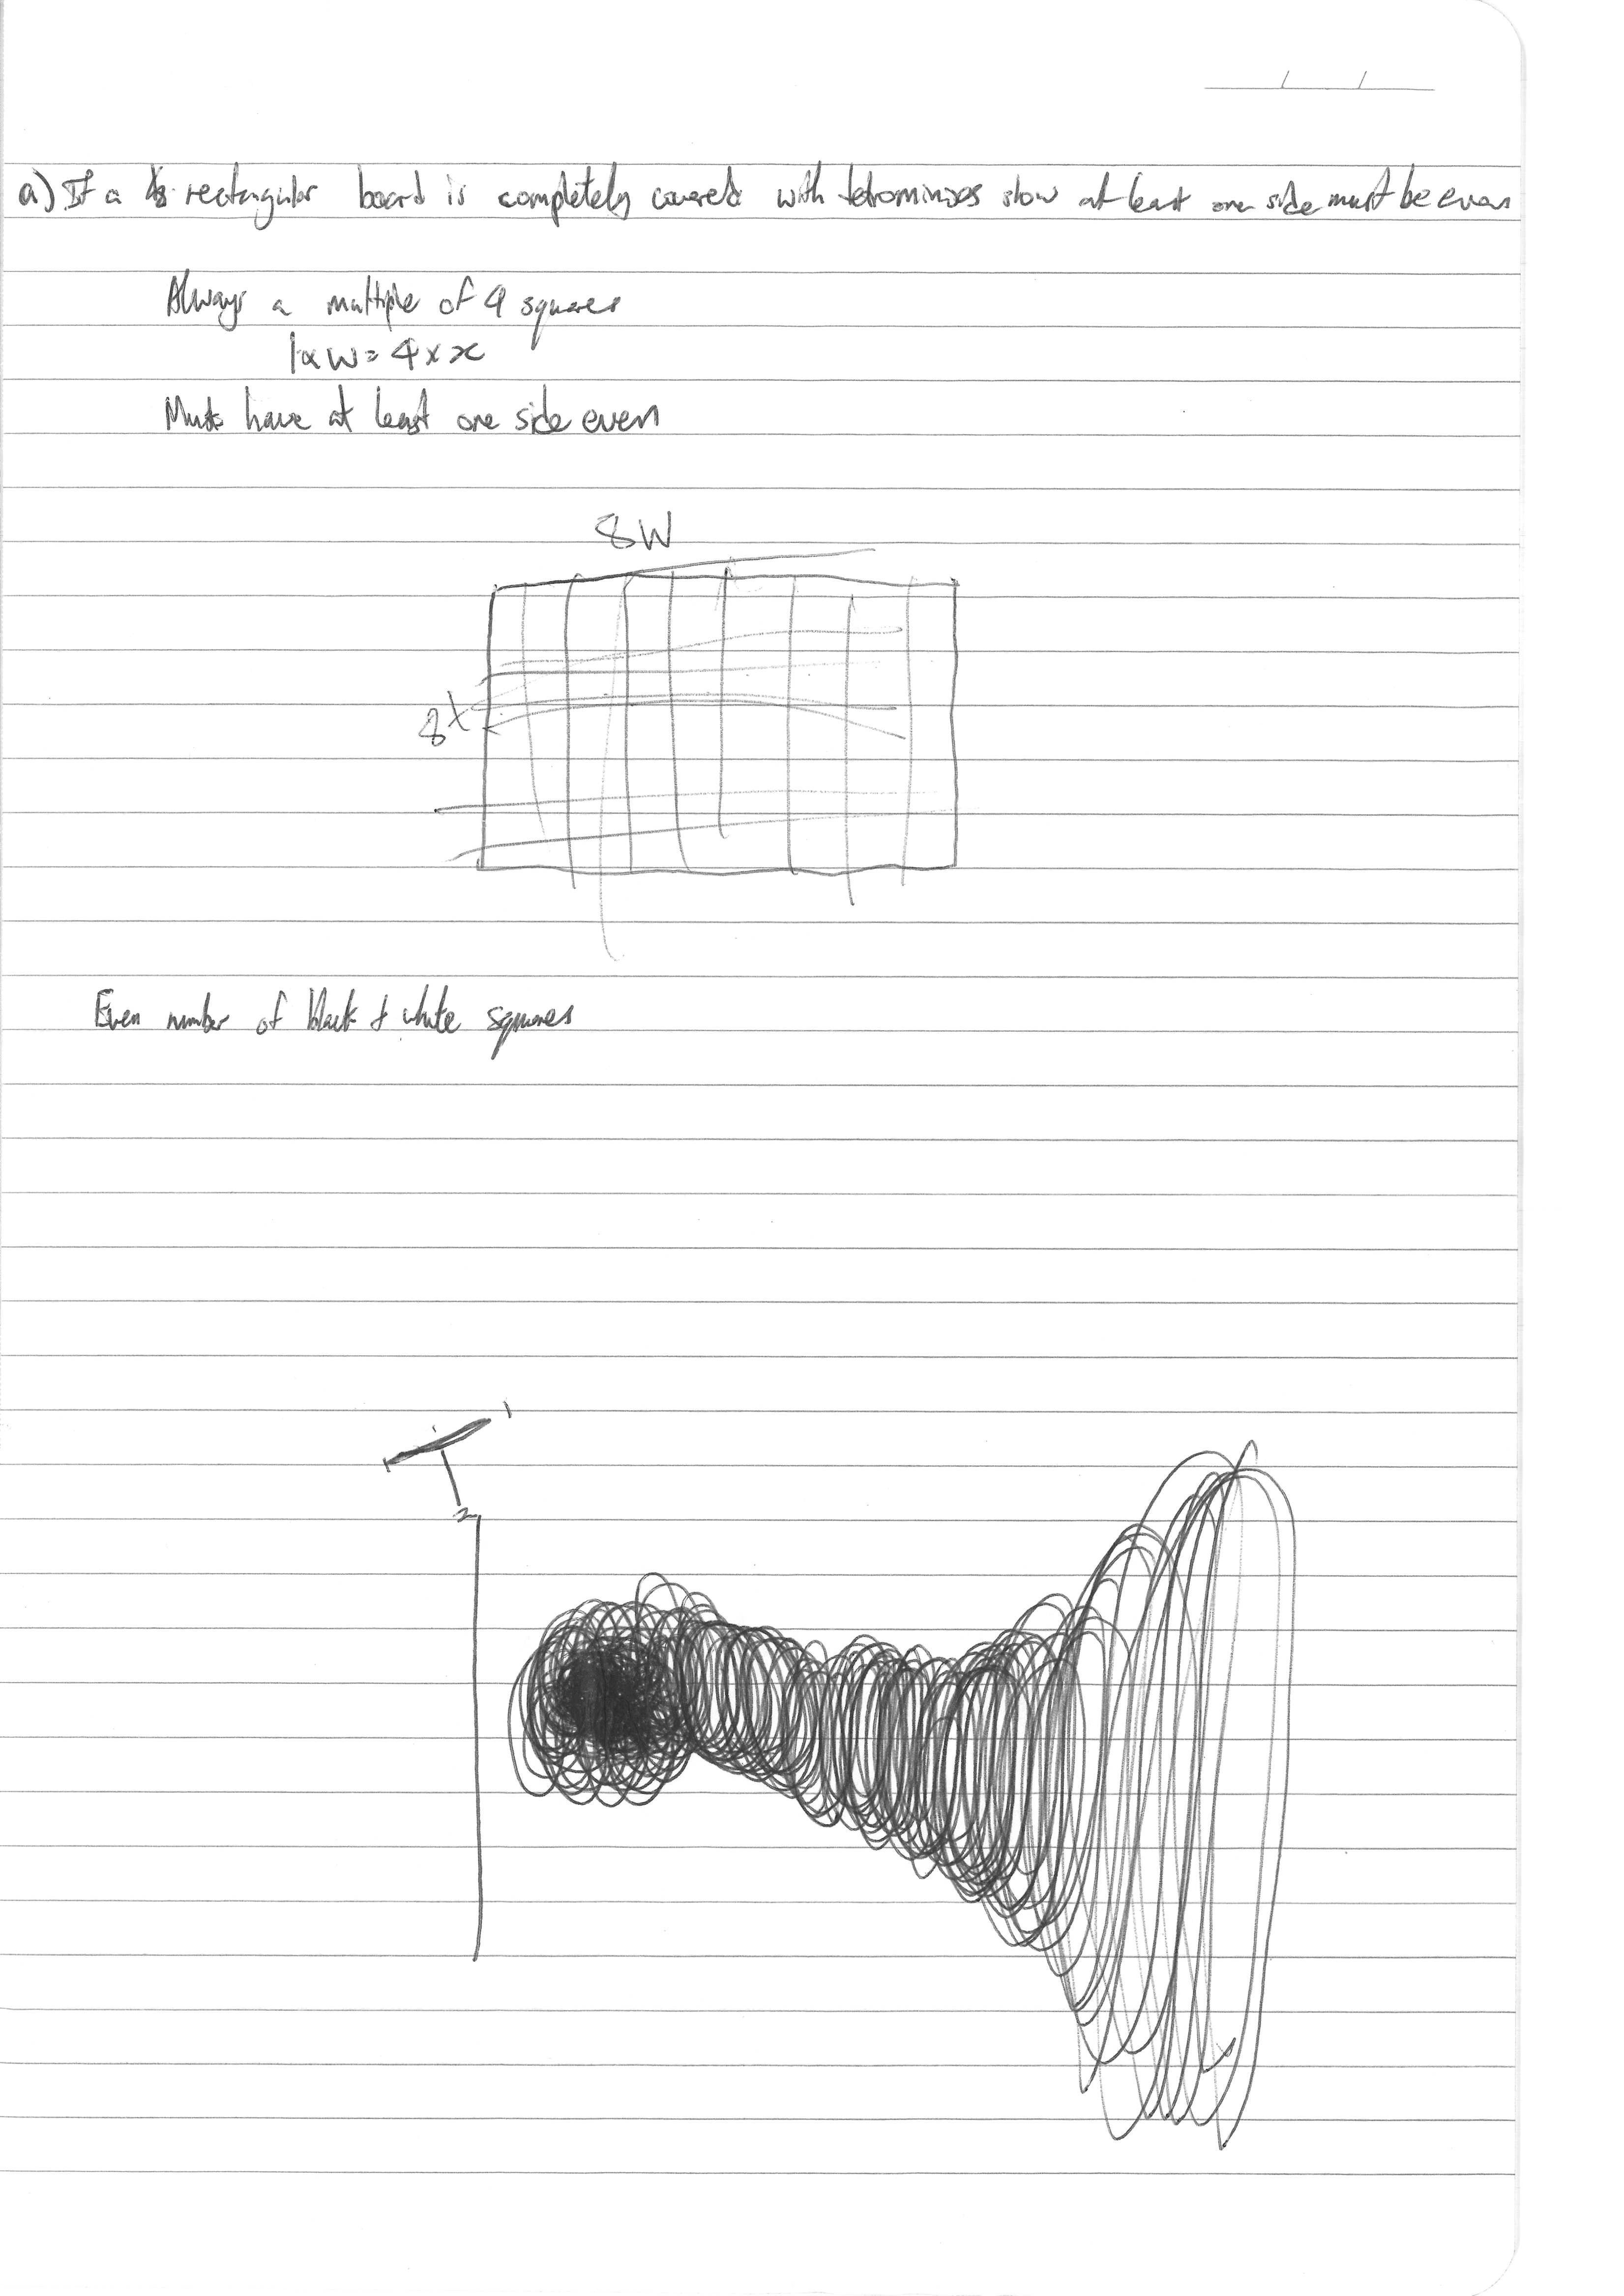 a) If a rectangular board is completely covered with tetrominoes show at least one side must be even
Always a multiple of 4 squares
l x W = 4 x x
Must have at least one side even
8W
8
Even number of black & white squares